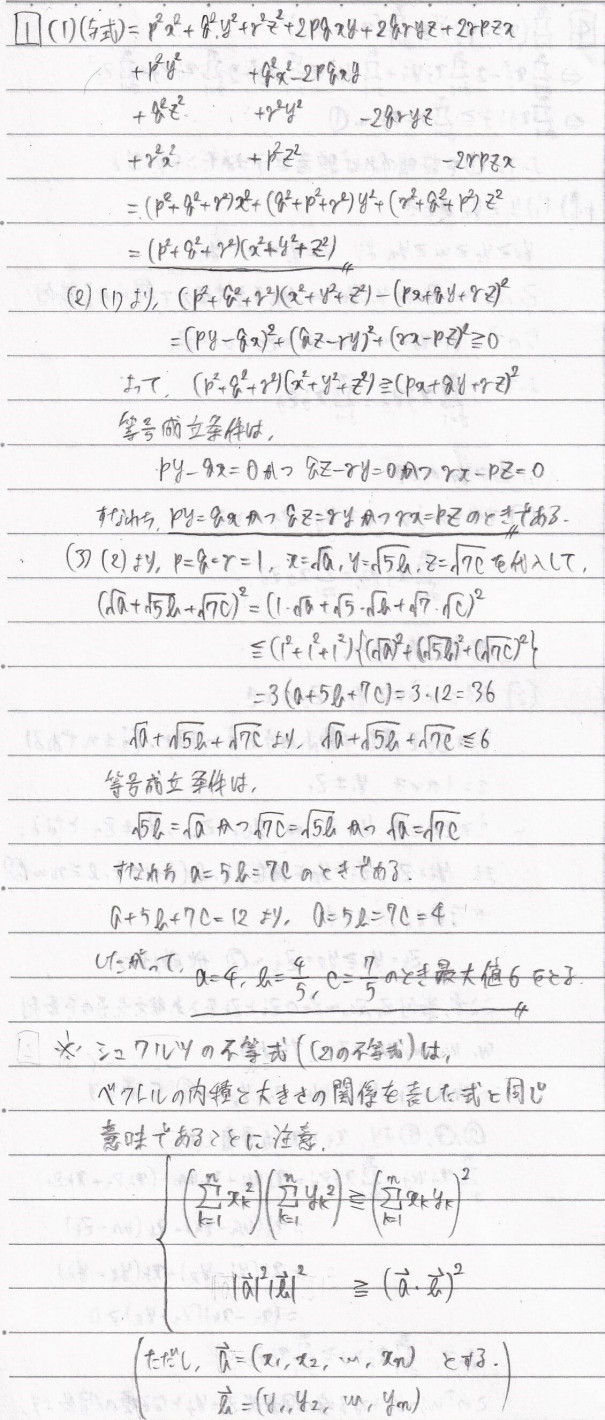 1 (1) (与式) = p²x² + q²y² + r²z² + 2pqxy + 2qryz + 2rpzx
+ p²y² + q²x² - 2pqxy
+ q²z² + r²y² - 2qryz
+ r²x² + p²z² - 2rpzx
= (p² + q² + r²)x² + (q² + p² + r²)y² + (r² + q² + p²)z²
= (p² + q² + r²)(x² + y² + z²)
(2) (1)より, (p² + q² + r²)(x² + y² + z²) - (px + qy + rz)²
= (py - qx)² + (qz - ry)² + (rx - pz)² ≧ 0
よって, (p² + q² + r²)(x² + y² + z²) ≧ (px + qy + rz)²
等号成立条件は,
py - qx = 0 かつ qz - ry = 0 かつ rx - pz = 0
すなわち, py = qx かつ qz = ry かつ rx = pz のときである.
(3) (2)より, p = q = r = 1, x = √a, y = √5b, z = √7c を代入して,
(√a + √5b + √7c)² = (1·√a + √5·√b + √7·√c)²
≦ (1² + 1² + 1²){(√a)² + (√5b)² + (√7c)²}
= 3(a + 5b + 7c) = 3·12 = 36
√a + √5b + √7c より, √a + √5b + √7c ≦ 6
等号成立条件は,
√5b = √a かつ √7c = √5b かつ √a = √7c
すなわち a = 5b = 7c のときである.
a + 5b + 7c = 12 より, a = 5b = 7c = 4
したがって, a = 4, b = 4/5, c = 7/5 のとき最大値6をとる.
※ シュワルツの不等式((2)の不等式)は,
ベクトルの内積と大きさの関係を表した式と同じ
意味であることに注意.
(∑_{k=1}^{n} x_k²)(∑_{k=1}^{n} y_k²) ≧ (∑_{k=1}^{n} x_k y_k)²
|a⃗|²|b⃗|² ≧ (a⃗·b⃗)²
(ただし, a⃗ = (x₁, x₂, …, xₙ) とする.)
b⃗ = (y₁, y₂, …, yₙ)